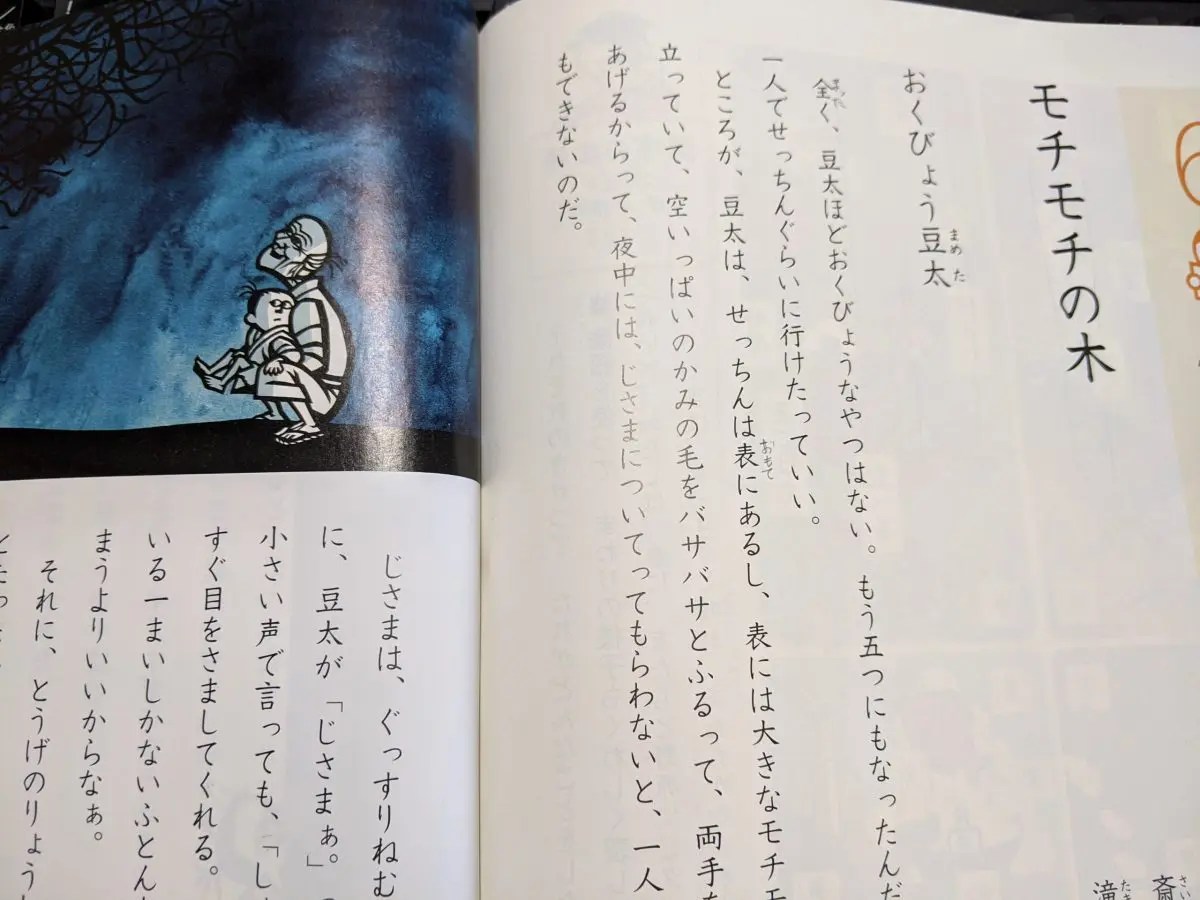 モチモチの木
斎
滝
おくびょう豆太
全く、豆太ほどおくびょうなやつはない。もう五つにもなったんだ
一人でせっちんぐらいに行けたっていい。
ところが、豆太は、せっちんは表にあるし、表には大きなモチモ
立っていて、空いっぱいのかみの毛をバサバサとふるって、両手を
あげるからって、夜中には、じさまについてってもらわないと、一人
もできないのだ。
じさまは、ぐっすりねむ
に、豆太が「じさまぁ。」
小さい声で言っても、「し
すぐ目をさましてくれる。
いる一まいしかないふとん
まうよりいいからなぁ。
それに、とうげのりょう